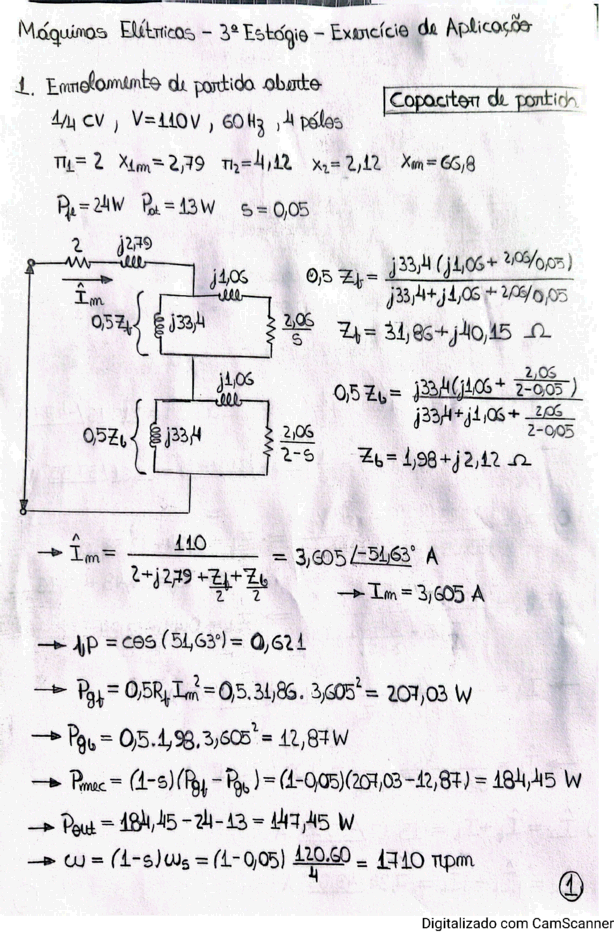 Máquinas Elétricas - 3º Estágio - Exercício de Aplicação
1. Enrolamento de partida aberto
Capacitor de partida
1/4 CV, V=110V, 60Hz, 4 pólos
r1=2 X1m=2,79 r2=4,12 X2=2,12 Xm=66,8
Pfe=24W Pat=13W s=0,05
2 j2,79
j1,06
Îm
0,5Zf j33,4 2,06/s
0,5 Zf = j33,4 (j1,06 + 2,06/0,05) / j33,4+j1,06 + 2,06/0,05
Zf = 31,86+j40,15 Ω
j1,06
0,5Zb j33,4 2,06/2-s
0,5 Zb = j33,4(j1,06 + 2,06/2-0,05) / j33,4+j1,06+ 2,06/2-0,05
Zb = 1,98+j2,12 Ω
→ Îm = 110 / 2+j2,79+Zf/2+Zb/2 = 3,605 /-51,63° A
→ Im = 3,605 A
→ fp = cos(51,63°) = 0,621
→ Pgf = 0,5RfIm² = 0,5.31,86. 3,605² = 207,03 W
→ Pgb = 0,5.1,98.3,605² = 12,87W
→ Pmec = (1-s)(Pgf-Pgb) = (1-0,05)(207,03-12,87) = 184,45 W
→ Pout = 184,45-24-13 = 147,45 W
→ ω = (1-s)ωs = (1-0,05) 120.60/4 = 1710 rpm
1
Digitalizado com CamScanner